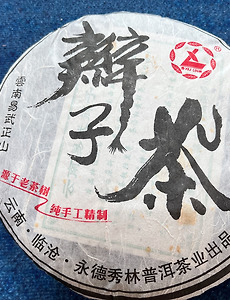 辮子茶
雲南易武正山
源于老茶树
纯手工精制
云南·临沧·永德秀林普洱茶业出品